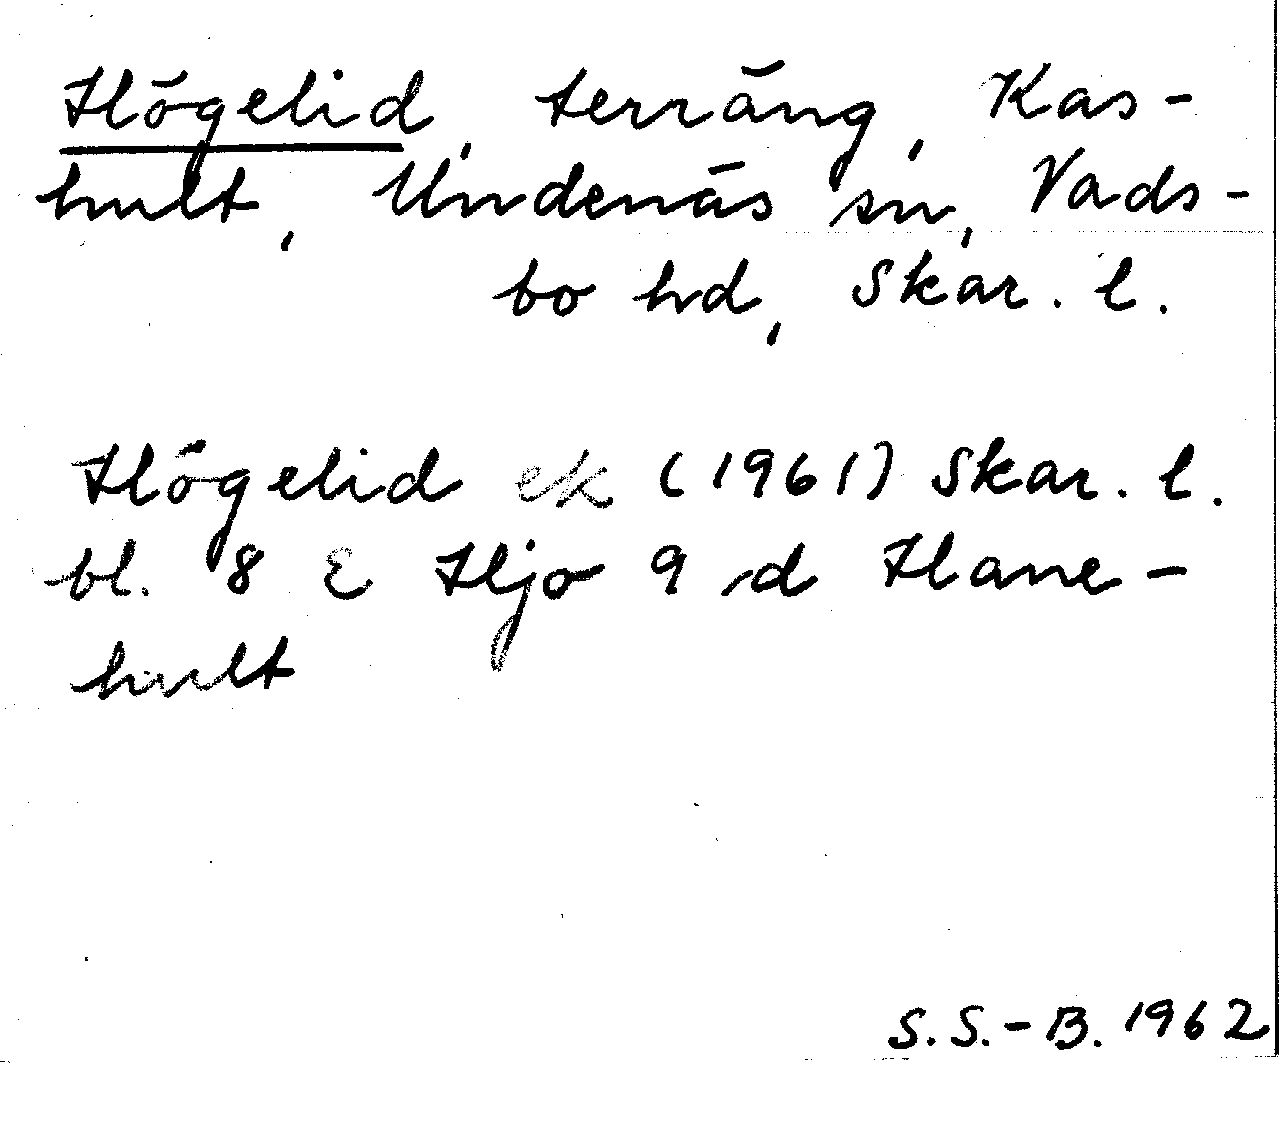 Högelid, terräng, Kas-
hult, Undenäs sn, Vads-
bo hd, Skar. l.
Högelid ek (1961) Skar. l.
bl. 8 E Hjo 9 d Hane-
hult
S.S.-B. 1962